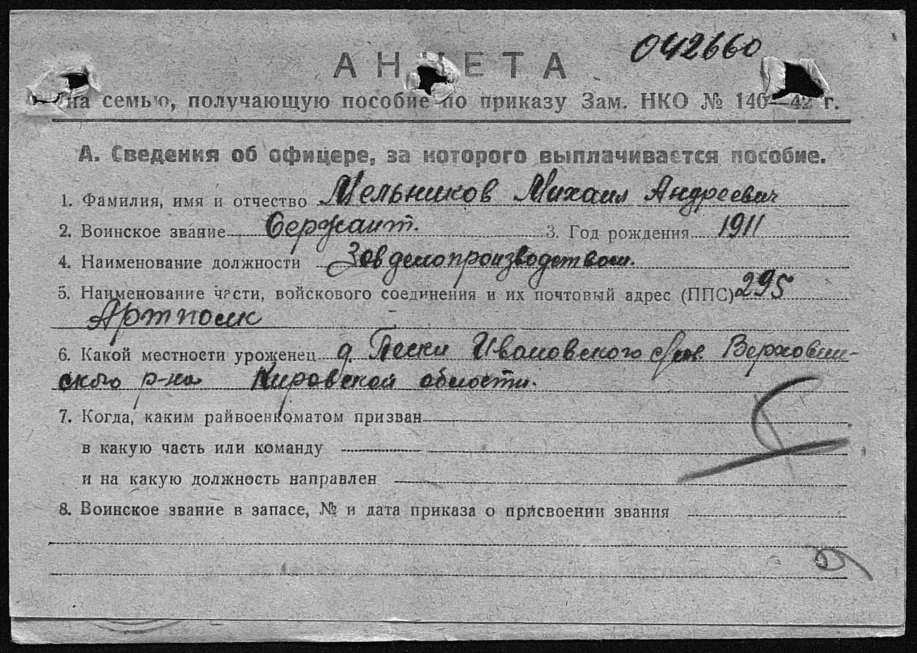 042660
АНКЕТА
на семью, получающую пособие по приказу Зам. НКО № 140—42 г.
А. Сведения об офицере, за которого выплачивается пособие.
1. Фамилия, имя и отчество Мельников Михаил Андреевич
2. Воинское звание Сержант. 3. Год рождения 1911
4. Наименование должности Завделопроизводством.
5. Наименование части, войскового соединения и их почтовый адрес (ППС) 295
Артполк
6. Какой местности уроженец д. Пески Ивановского с/сов. Верховин-
ского р-на Кировской области.
7. Когда, каким райвоенкоматом призван
в какую часть или команду
и на какую должность направлен
8. Воинское звание в запасе, № и дата приказа о присвоении звания